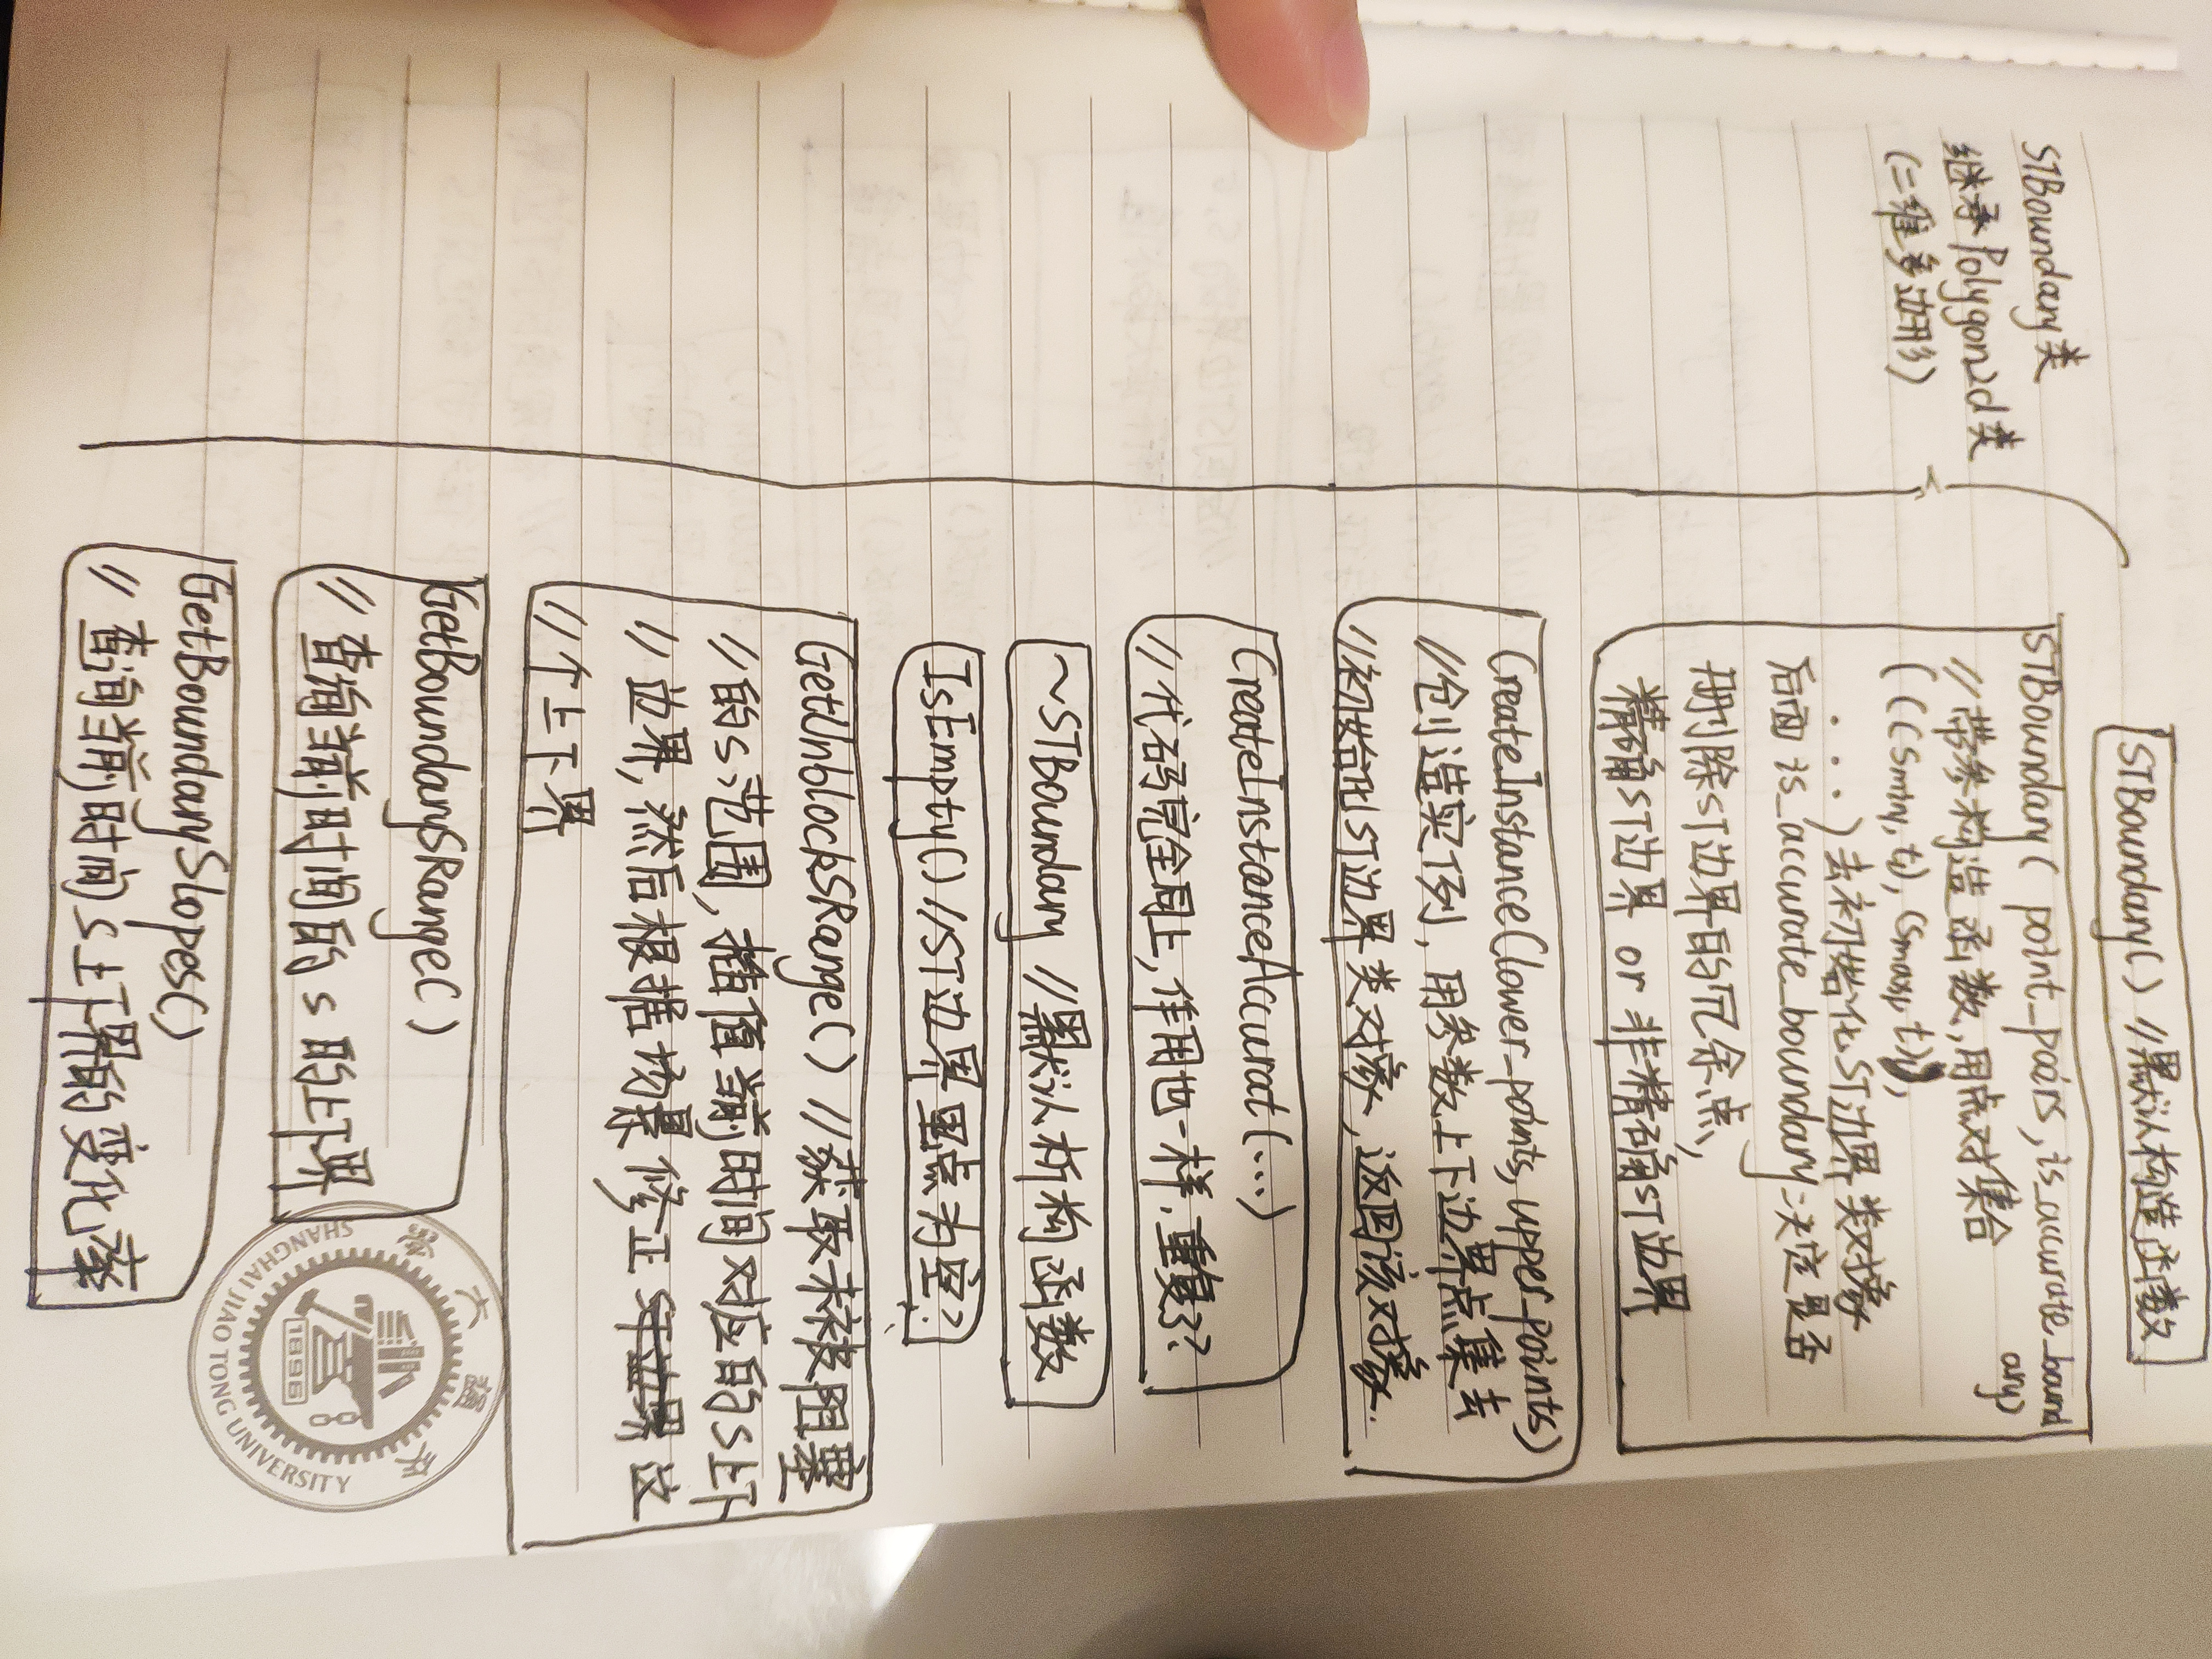 STBoundary类
继承Polygon2d类
(二维多边形)
STBoundary() //默认构造函数
STBoundary( point_pairs, is_accurate_bound
ary)
//带参构造函数,用点对集合
( ((Smin, t), (Smax, t)),
...) 去初始化ST边界类对象
后面is_accurate_boundary决定是否
删除ST边界的冗余点,
精确ST边界 or 非精确ST边界
CreateInstance(lower_points, upper_points)
//创造实例,用参数上下边界点集去
//初始化ST边界类对象,返回该对象.
CreateInstanceAccurat(...)
//代码完全同上,作用也一样,重复了?
~STBoundary //默认析构函数
IsEmpty() //ST边界里点为空?
GetUnblockSRange() //获取未被阻塞
//的s范围,插值当前时间对应的S上下
//边界,然后根据场景修正 这
//个上下界
GetBoundarySRange()
//查询当前时间的s的上下界
GetBoundarySlopes()
//查询当前时间S上下界的变化率
SHANGHAI JIAO TONG UNIVERSITY
1896